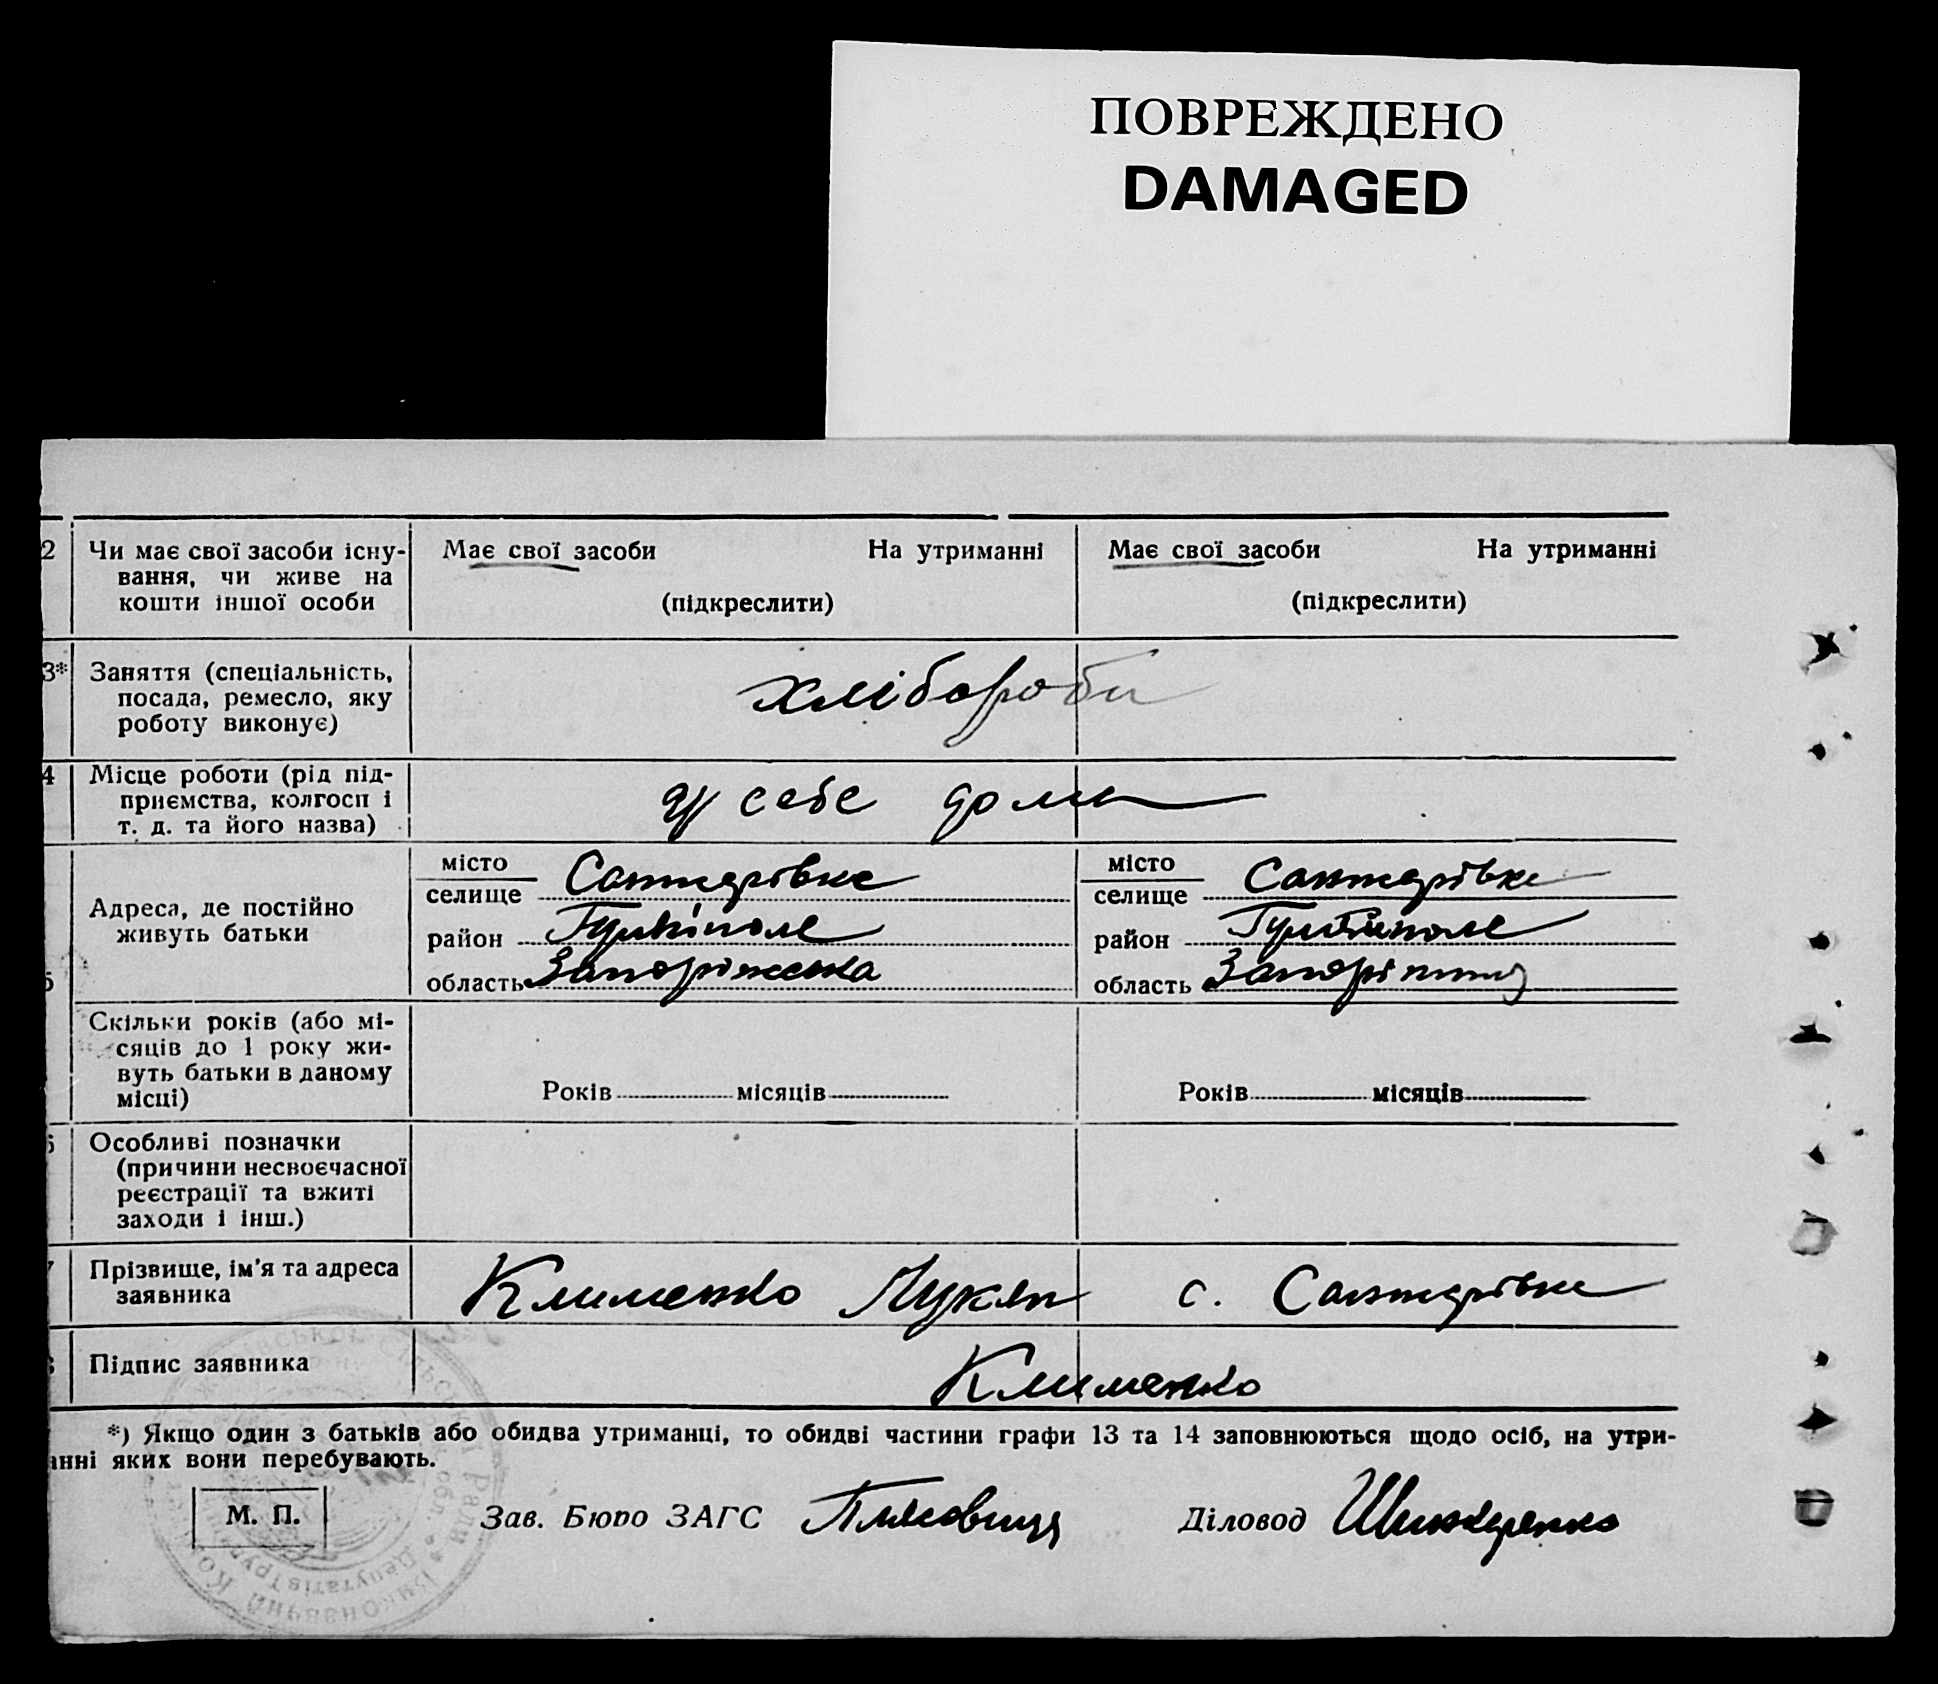 ПОВРЕЖДЕНО
DAMAGED
2 Чи має свої засоби існу- Має свої засоби На утриманні Має свої засоби На утриманні
вання, чи живе на
кошти іншої особи (підкреслити) (підкреслити)
3* Заняття (спеціальність,
посада, ремесло, яку хлібороби
роботу виконує)
4 Місце роботи (рід під-
приємства, колгосп і у себе дома
т. д. та його назва)
місто місто
селище Санжарівка селище Санжарівка
Адреса, де постійно
живуть батьки район Гуляйполе район Гуляйполе
область Запоріжська область
Скільки років (або мі-
сяців до 1 року жи-
вуть батьки в даному Років місяців Років місяців
місці)
Особливі позначки
(причини несвоєчасної
реєстрації та вжиті
заходи і інш.)
Прізвище, ім'я та адреса Клименко Лукян с. Санжарівка
заявника
Підпис заявника Клименко
*) Якщо один з батьків або обидва утриманці, то обидві частини графи 13 та 14 заповнюються щодо осіб, на утри-
анні яких вони перебувають.
М. П. Зав. Бюро ЗАГС Діловод Шинкаренко